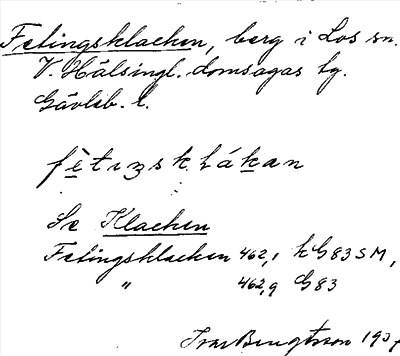 Fetingsklacken, berg i Los sn.
V. Hälsingl. domsagas tg.
Gävleb. l.
fètiŋsklákan
Se Klacken
Fetingsklacken 462,1 kG83SM,
" 462,9 G83
Ivar Bengtsson